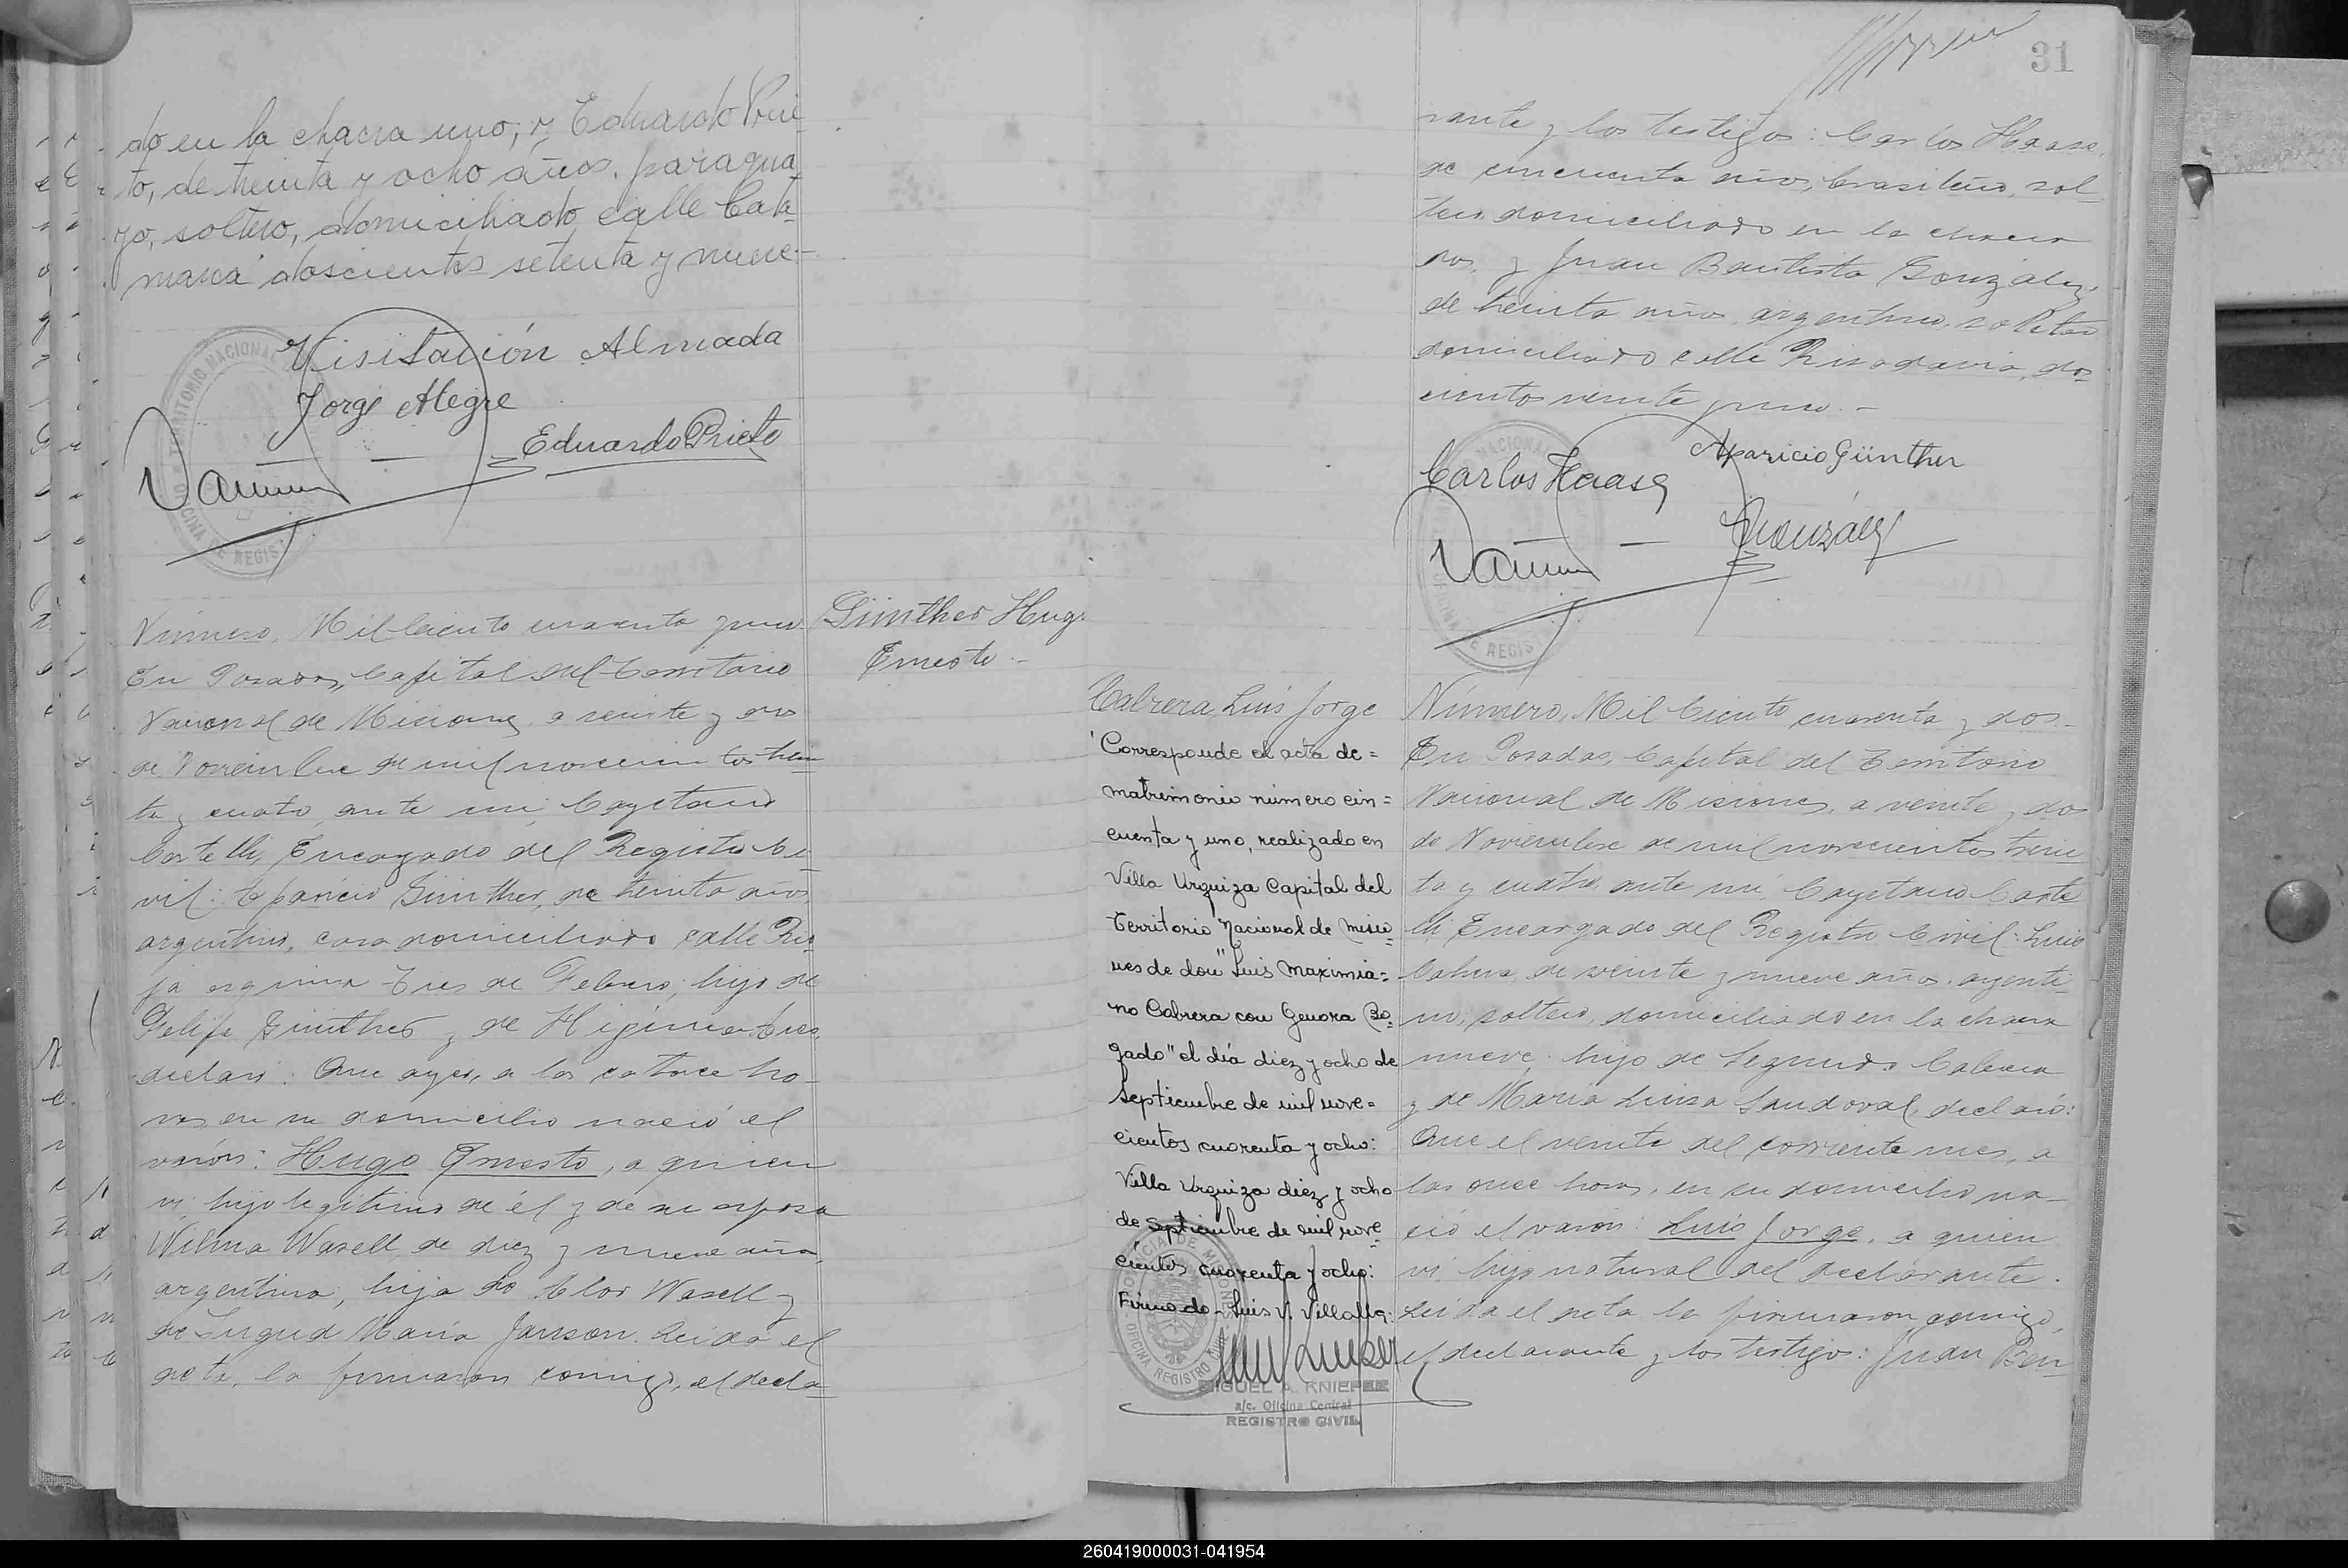 do en la chacra uno, y Eduardo Prie
to, de treinta y ocho años, paragua
yo, soltero, domiciliado calle Cata
marca doscientos setenta y nueve.-
Visitación Almada
Jorge Alegre
Eduardo Prieto
TERRITORIO NACIONAL
OFICINA DE REGIS
Número, Mil ciento cuarenta y uno.
Günther Hugo
Ernesto.-
En Posadas, Capital del Territorio
Nacional de Misiones, a veinte y dos
de Noviembre de mil novecientos trein
ta y cuatro, ante mi, Cayetano
Castelli, Encargado del Registro Ci
vil: Aparicio Günther, de treinta años,
argentino, casado domiciliado calle Rio
ja esquina Tres de Febrero; hijo de
Felipe Günther y de Higinia
declaró: Que ayer, a las catorce ho-
ras, en su domicilio nació el
varón: Hugo Ernesto, a quien
vi, hijo legítimo de él y de su esposa
Wilma Wasell, de diez y nueve años,
argentina, hija de Wasell y
de María Janson. Leida el
acta, la firmaron conmigo, el decla
31
rante y los testigos: Carlos Haase,
de cincuenta años, brasileño, sol
tero, domiciliado en la chacra
dos, y Juan Bautista González,
de treinta años, argentino, soltero
domiciliado calle Rivadavia, dos
cientos veinte y uno.-
Aparicio Günther
Carlos Haase
González
NACIONAL
OFICINA DE REGIS
Cabrera, Luis Jorge
"Corresponde el acta de=
matrimonio número cin=
cuenta y uno, realizado en
Villa Urquiza Capital del
Territorio Nacional de Misio=
nes de don "Luis Maximia=
no Cabrera con Genora Bo=
gado" el día diez y ocho de
septiembre de mil nove=
cientos cuarenta y ocho:
Villa Urquiza diez y ocho
de septiembre de mil nove=
cientos cuarenta y ocho:
Firmado - Luis V. Villalba:
MIGUEL A. KNIEPER
a/c. Oficina Central
REGISTRO CIVIL
Número, Mil Ciento cuarenta y dos.-
En Posadas, Capital del Territorio
Nacional de Misiones, a veinte y dos
de Noviembre de mil novecientos trein
ta y cuatro, ante mi, Cayetano Caste
lli Encargado del Registro Civil: Luis
Cabrera, de veinte y nueve años, argenti-
no, soltero, domiciliado en la chacra
nueve; hijo de Segundo Cabrera
y de María Luisa Sandoval, declaró:
Que el veinte del corriente mes, a
las once horas, en su domicilio na-
ció el varón: Luis Jorge, a quien
vi, hijo natural del declarante.
Leida el acta la firmaron conmigo,
el declarante y los testigos: Juan Ben
260419000031-041954